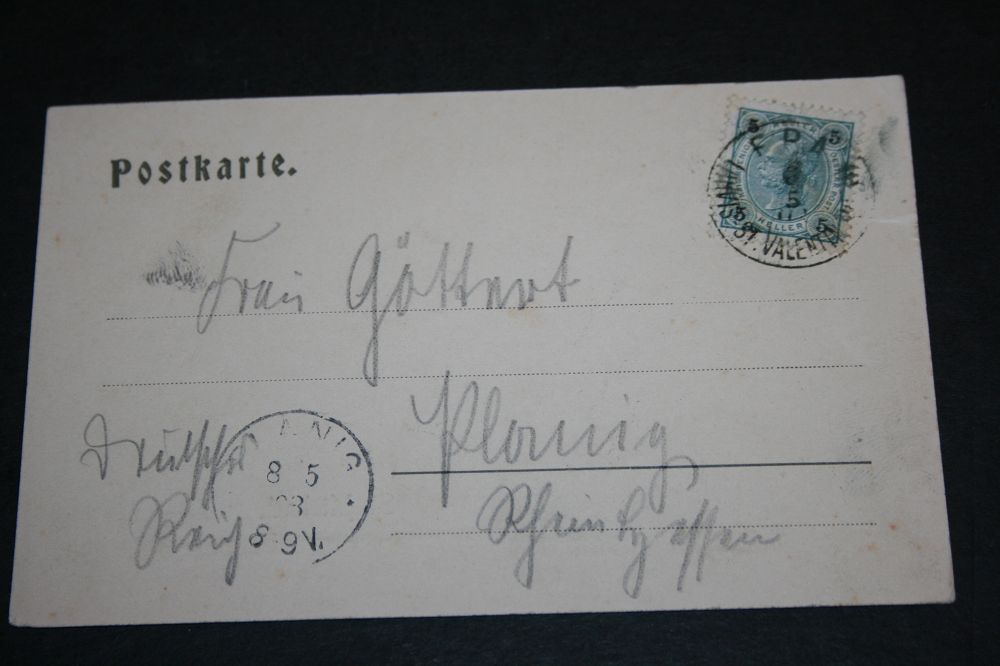 Postkarte.
5 HELLER 5
5 HELLER 5
ST. VALENT
6
5
Frau Göttert
Planig
Rheinhessen
Deutsches
Reich
ANIG
8 5
8-9V.